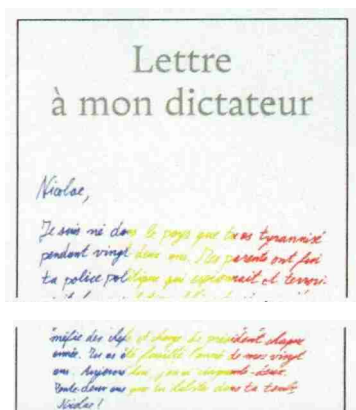 Lettre
à mon dictateur
Nicolae,
Je suis né dans le pays que tu as tyrannisé
pendant vingt-deux ans. Mes parents ont fui
ta police politique qui espionnait et terrori-
méfie des chefs et change de président chaque
année. Tu as été fusillé l'année de mes vingt
ans. Aujourd'hui, j'en ai cinquante-deux.
dans ta tombe
Nicolae !